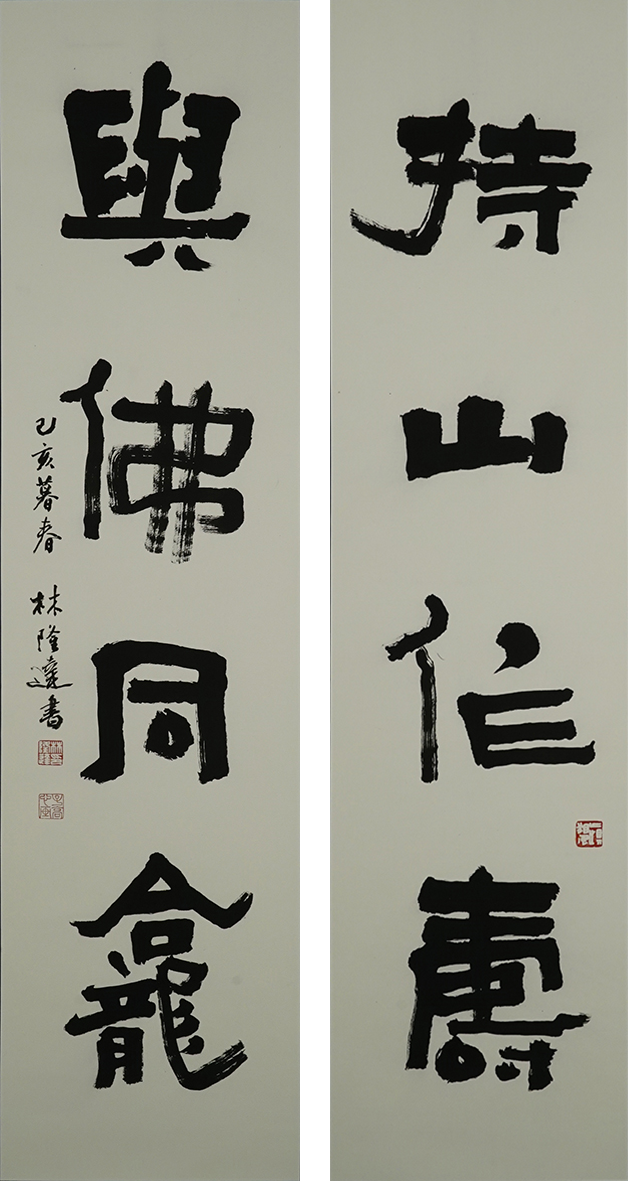 持山作壽
與佛同龕
己亥暮春 林隆達書